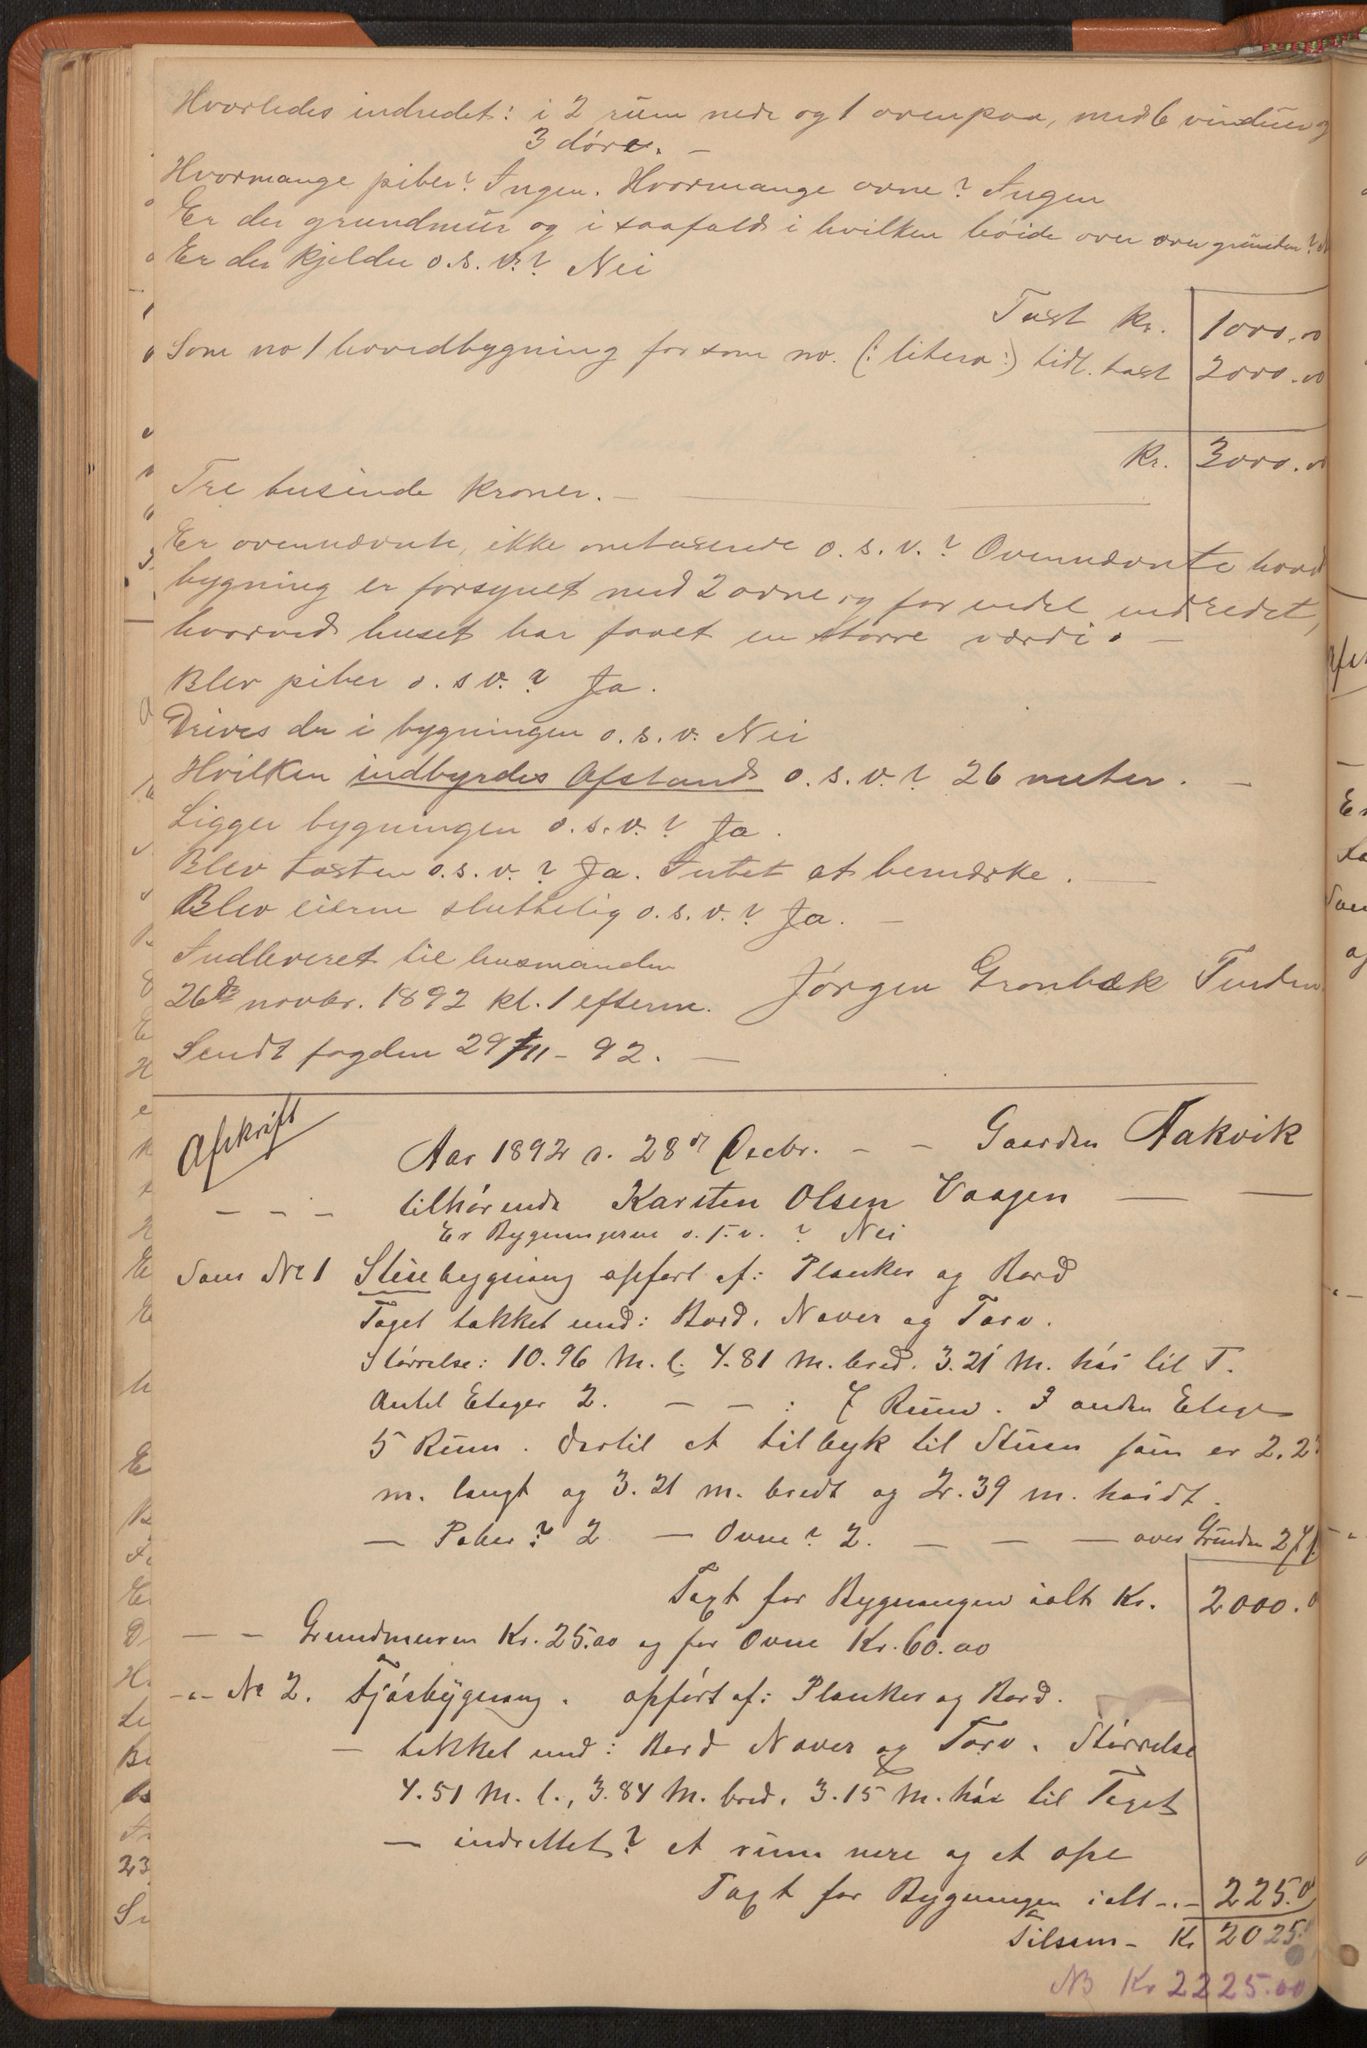 Hvorledes indredet: i 2 rum nede og 1 ovenpaa, med 6 vinduer og
3 døre. —
Hvormange piber? Ingen. Hvormange ovne? Ingen
Er der grundmur og i saafald i hvilken høide over over grunden?
Er der kjelder o.s.v.? Nei
Taxt Kr. 1000.00
Som no 1 hovedbygning for som no. (: litera :) tidl. taxt 2000.00
Kr. 3000.00
Tre tusinde kroner. —
Er ovennævnte, ikke omtaxerede o.s.v.? Ovennævnte hoved
bygning er forsynet med 2 ovne og for endel indredet,
hvorved huset har faaet en større værdi. —
Blev piber o.s.v.? Ja.
Drives der i bygningen o.s.v. Nei
Hvilken indbyrdes Afstand o.s.v.? 26 meter. —
Ligger bygningen o.s.v.? Ja.
Blev taxten o.s.v.? Ja. Intet at bemærke. —
Blev eieren sluttelig o.s.v.? Ja. —
Indleveret til lensmanden
26de novbr. 1892 kl. 1 efterm. Jørgen Grønbæk Tinden
Sendt fogden 29/11 - 92. —
Afskrift
Aar 1892 d. 28de Decbr. — — Gaarden Aakvik
— — — tilhørende Karsten Olsen Vaagen — —
Er Bygningerne o.s.v. ? Nei
Som No 1 Stuebygning opført af: Planker og Bord
Taget tækket med: Bord, Næver og Torv.
Størrelse: 10.96 M. l. 4.81 M. bred. 3.21 M. høi til T.
Antal Etager 2. — — : 7 Rum. I anden Etage
5 Rum. Dertil et tilbyk til Stuen som er 2.2
m. langt og 3.21 m. bredt og 2.39 m. høidt.
— Piber? 2 — Ovne? 2. — — — over Grunden 2
Taxt for Bygningen ialt Kr. 2000.0
— — Grundmuren Kr. 25.00 og for Ovne Kr. 60.00
-"- No 2. Fjøsbygning. opført af: Planker og Bord.
— tækket med: Bord Næver og Torv. Størrelse
4.51 M. l., 3.84 M. bred, 3.15 M. høi til Taget
— indrettet? et rum nere og et oppe
Taxt for Bygningen ialt -"- 225.0
Tilsam- Kr 2025.
NB Kr 2225.00